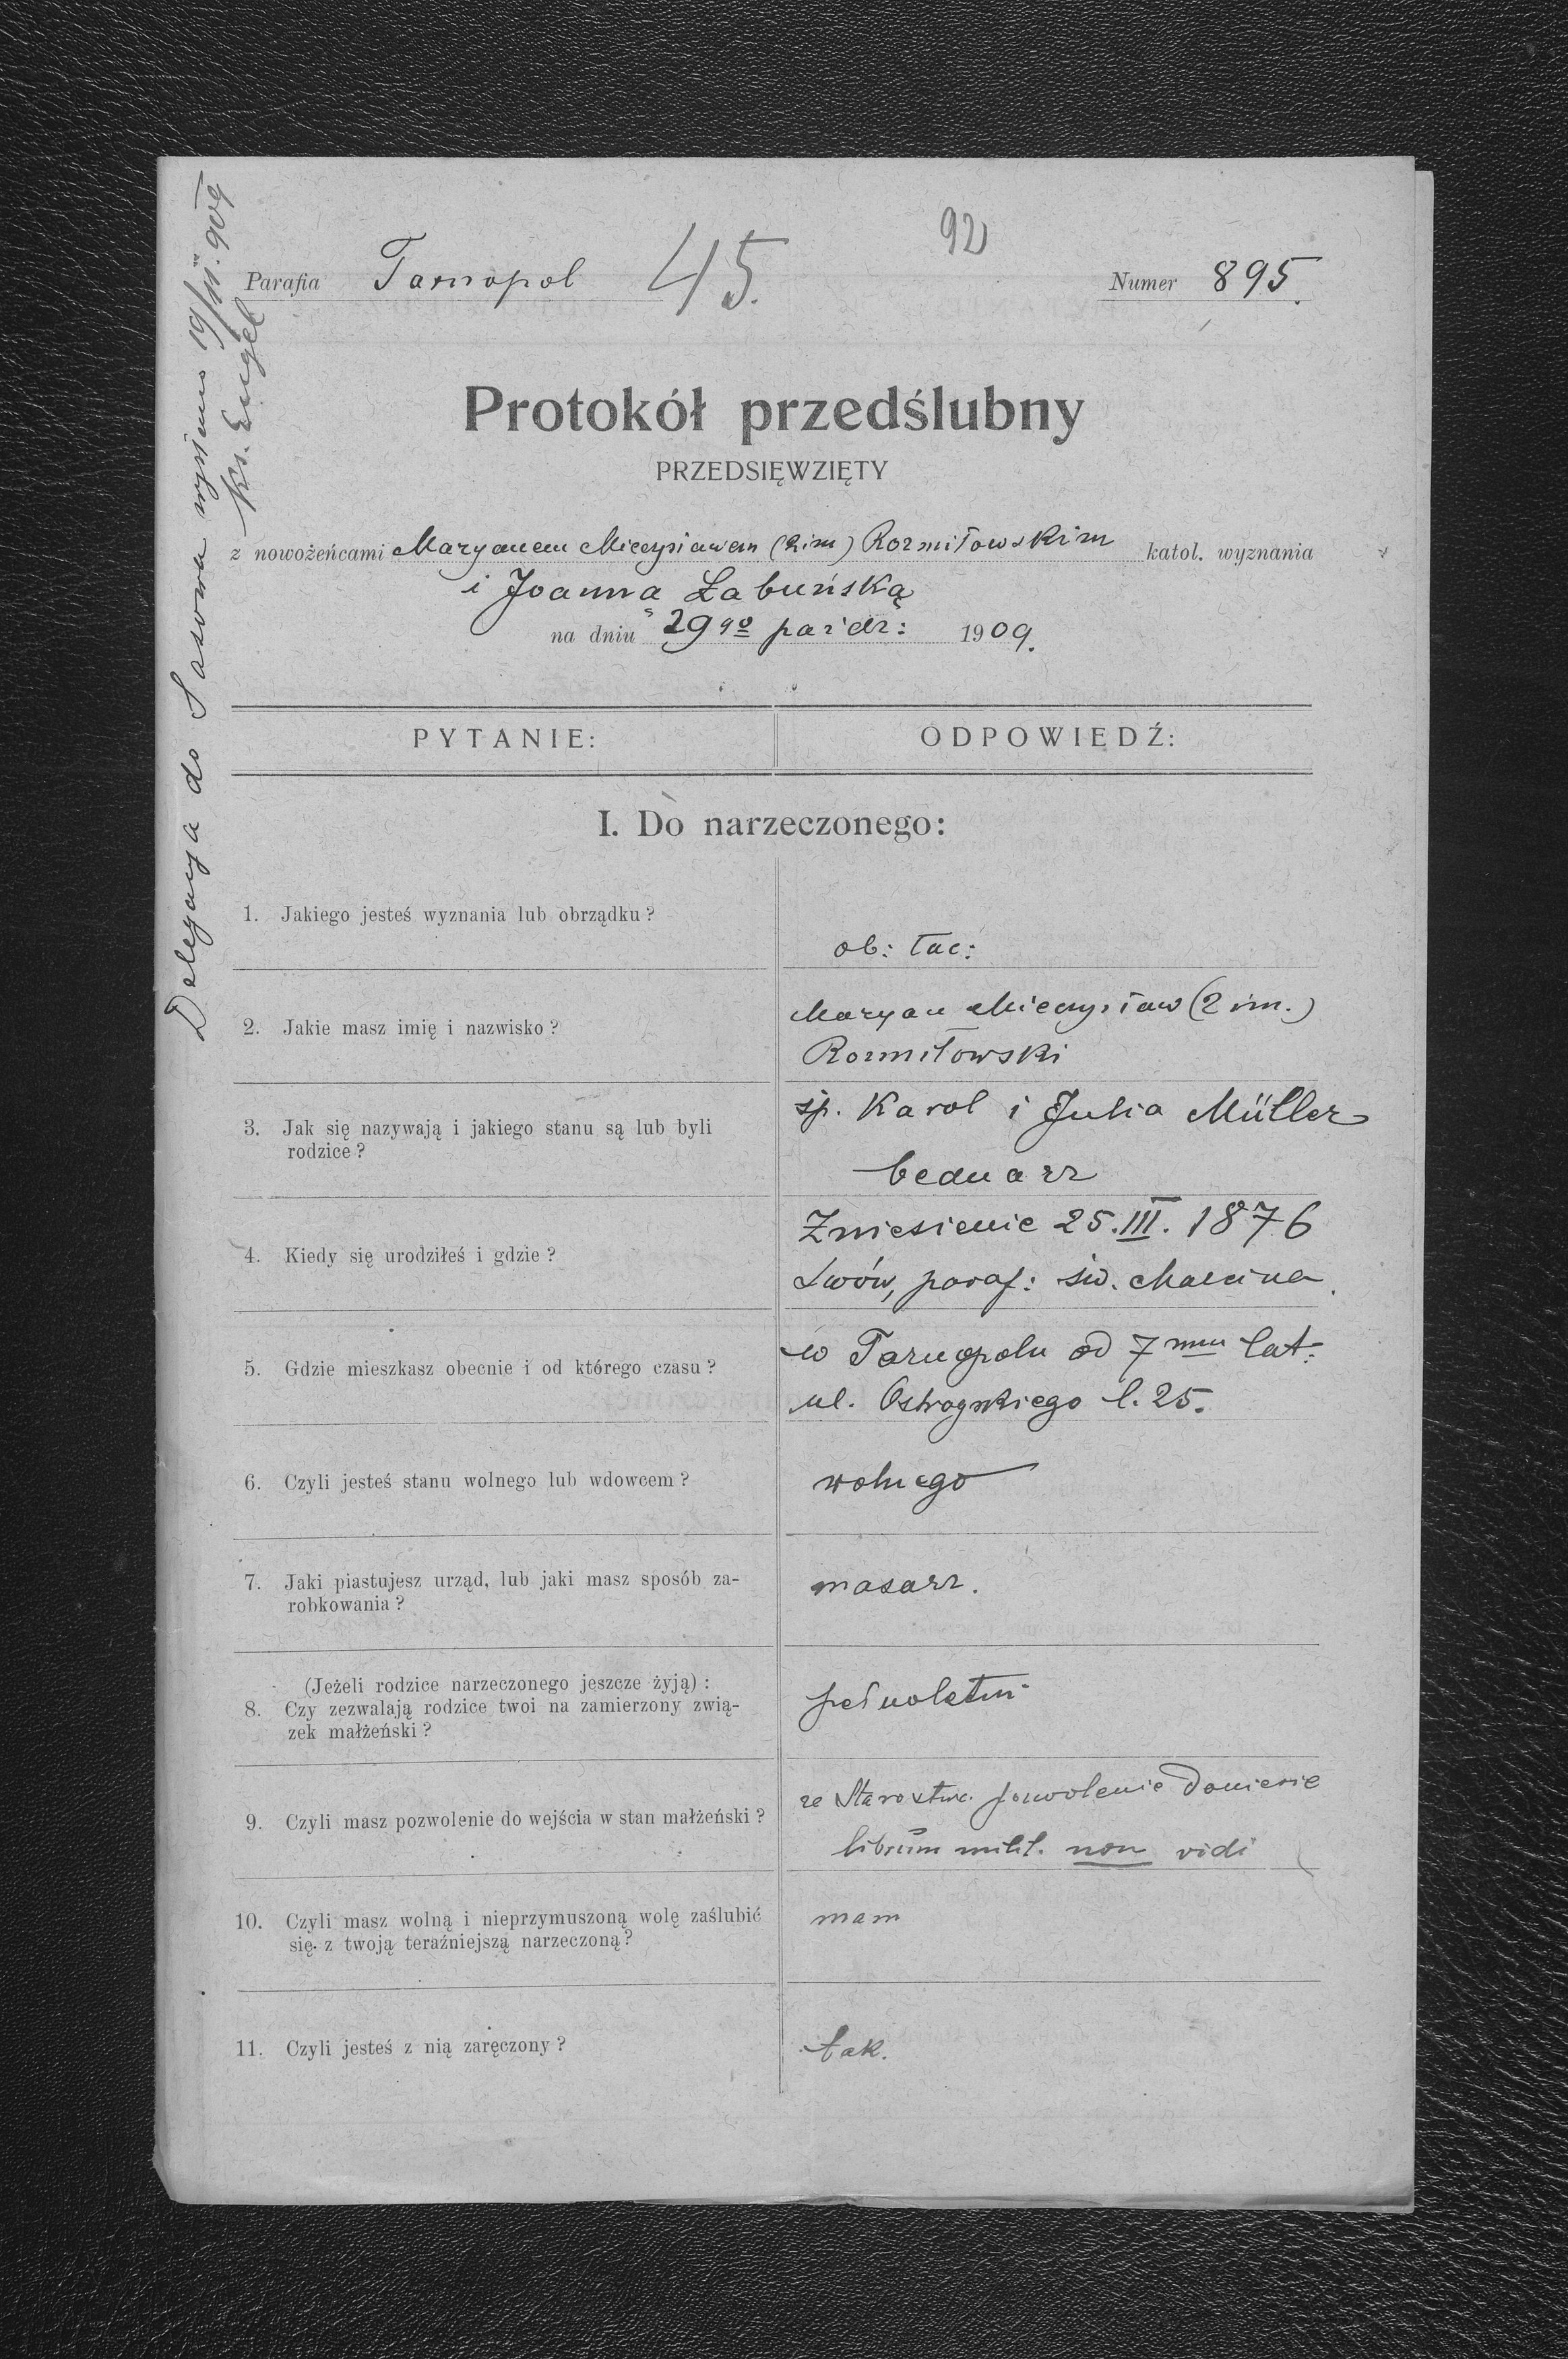 92
Parafia Tarnopol 45. Numer 895.
Delegacya do Sasowa wysłano 19/11. 909
Ks. Engel
Protokół przedślubny
PRZEDSIĘWZIĘTY
z nowożeńcami Maryanem Mieczysławem (2 im) Rozmiłowskim katol. wyznania
i Joanna Łabuńską
na dniu 29go paźdz: 1909.
PYTANIE: ODPOWIEDŹ:
I. Do narzeczonego:
1. Jakiego jesteś wyznania lub obrządku?
ob: łac:
2. Jakie masz imię i nazwisko?
Maryan Mieczysław (2 im.)
Rozmiłowski
3. Jak się nazywają i jakiego stanu są lub byli
rodzice?
śp. Karol i Julia Müller
bednarz
4. Kiedy się urodziłeś i gdzie?
Zniesienie 25.III. 1876
Lwów, paraf: św. Marcina.
5. Gdzie mieszkasz obecnie i od którego czasu?
w Tarnopolu od 7miu lat:
ul. Ostrogskiego l. 25.
6. Czyli jesteś stanu wolnego lub wdowcem?
wolnego
7. Jaki piastujesz urząd, lub jaki masz sposób za-
robkowania?
masarz.
(Jeżeli rodzice narzeczonego jeszcze żyją):
8. Czy zezwalają rodzice twoi na zamierzony zwią-
zek małżeński?
pełnoletni
9. Czyli masz pozwolenie do wejścia w stan małżeński?
ze Starostwa pozwolenie doniesie
librum milit. non vidi
10. Czyli masz wolną i nieprzymuszoną wolę zaślubić
się z twoją teraźniejszą narzeczoną?
mam
11. Czyli jesteś z nią zaręczony?
tak.